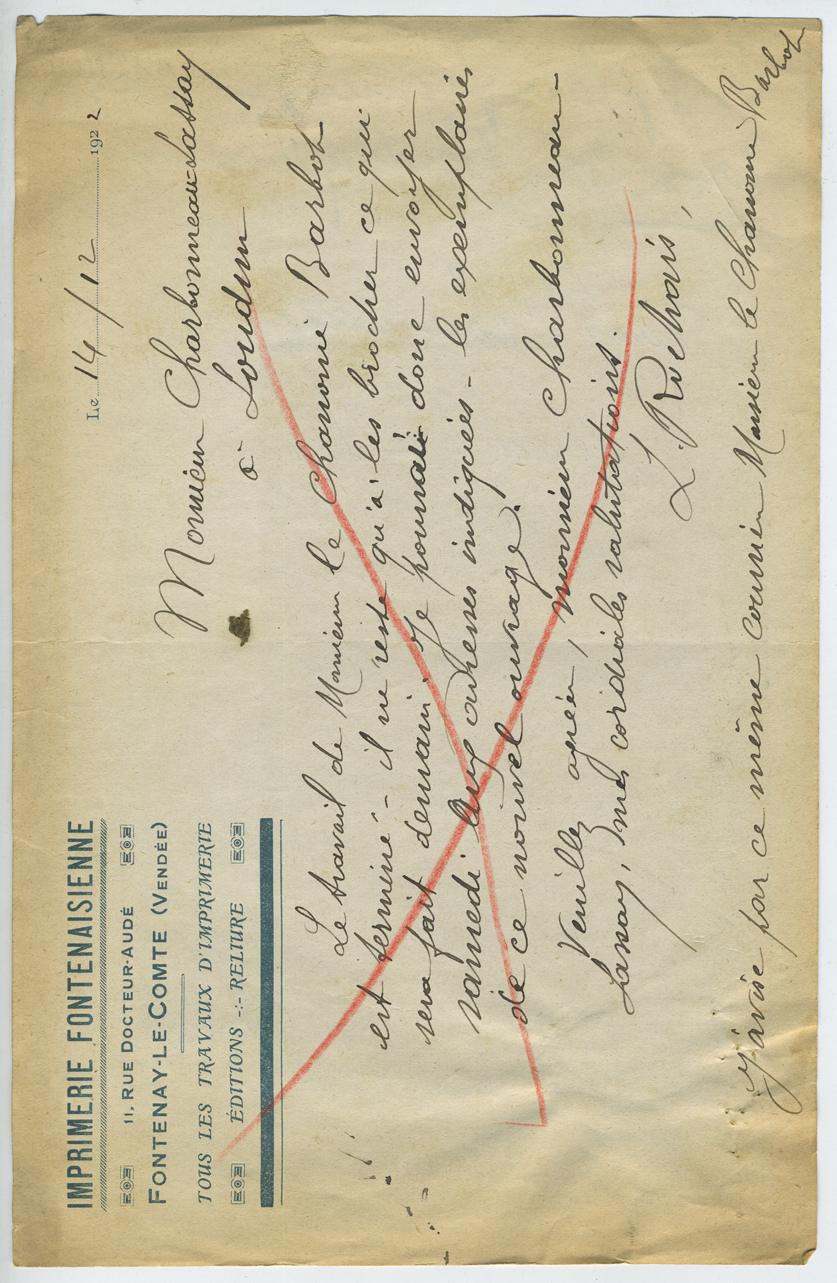 IMPRIMERIE FONTENAISIENNE
11, RUE DOCTEUR-AUDÉ
FONTENAY-LE-COMTE (VENDÉE)
TOUS LES TRAVAUX D'IMPRIMERIE
ÉDITIONS -:- RELIURE
Le 14/12 1922
Monsieur Charbonneau-Lassay
à Loudun
Le travail de Monsieur le Chanoine Barbot
est terminé - il ne reste qu'à les brocher ce qui
sera fait demain. Je pourrai donc envoyer
samedi aux adresses indiquées - les exemplaires
de ce nouvel ouvrage.
Veuillez agréer, monsieur Charbonneau-
Lassay, mes cordiales salutations.
L. Rochais,
J'avise par ce même courrier Monsieur le Chanoine Barbot